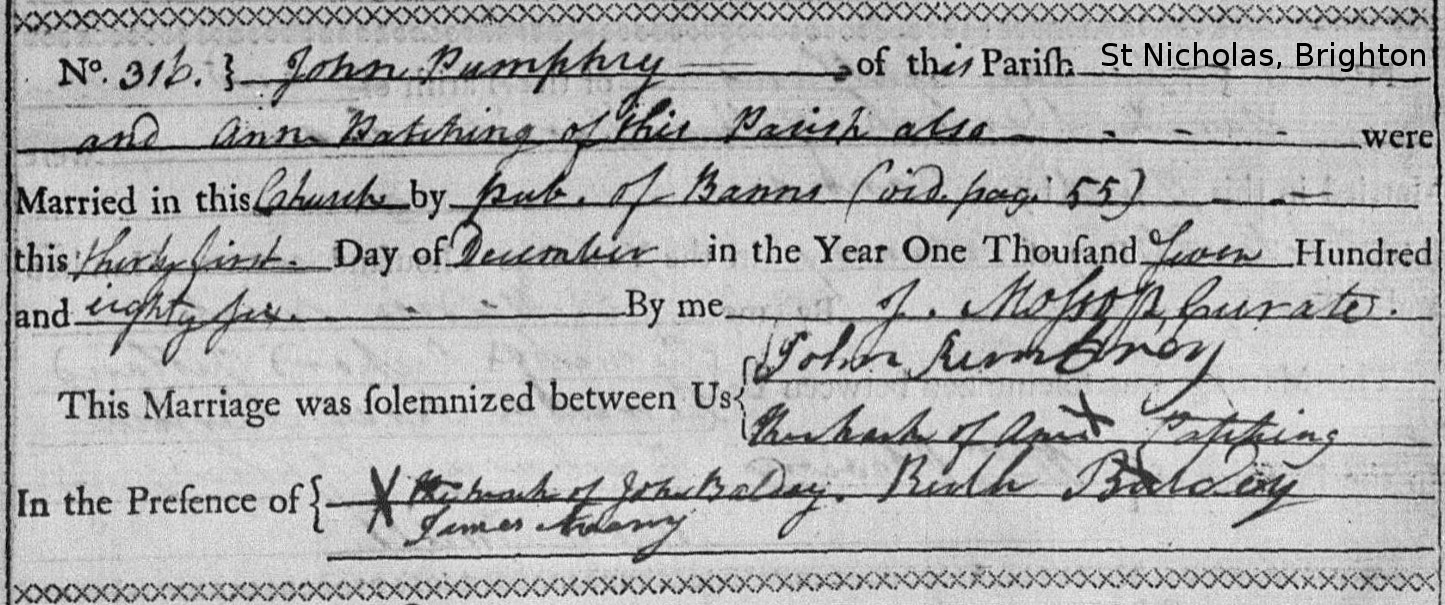 No. 316. } John Pumphry of this Pariſh St Nicholas, Brighton
and Ann Patching of this Parish also were
Married in this Church by pub. of Banns (vid. pag. 55)
this thirty first. Day of December in the Year One Thouſand Seven Hundred
and eighty six. By me J. Moſsop, Curate.
John
This Marriage was ſolemnized between Us {
The mark of Ann X Patching
In the Preſence of { X the mark of John Balday. Ruth Baldey
James